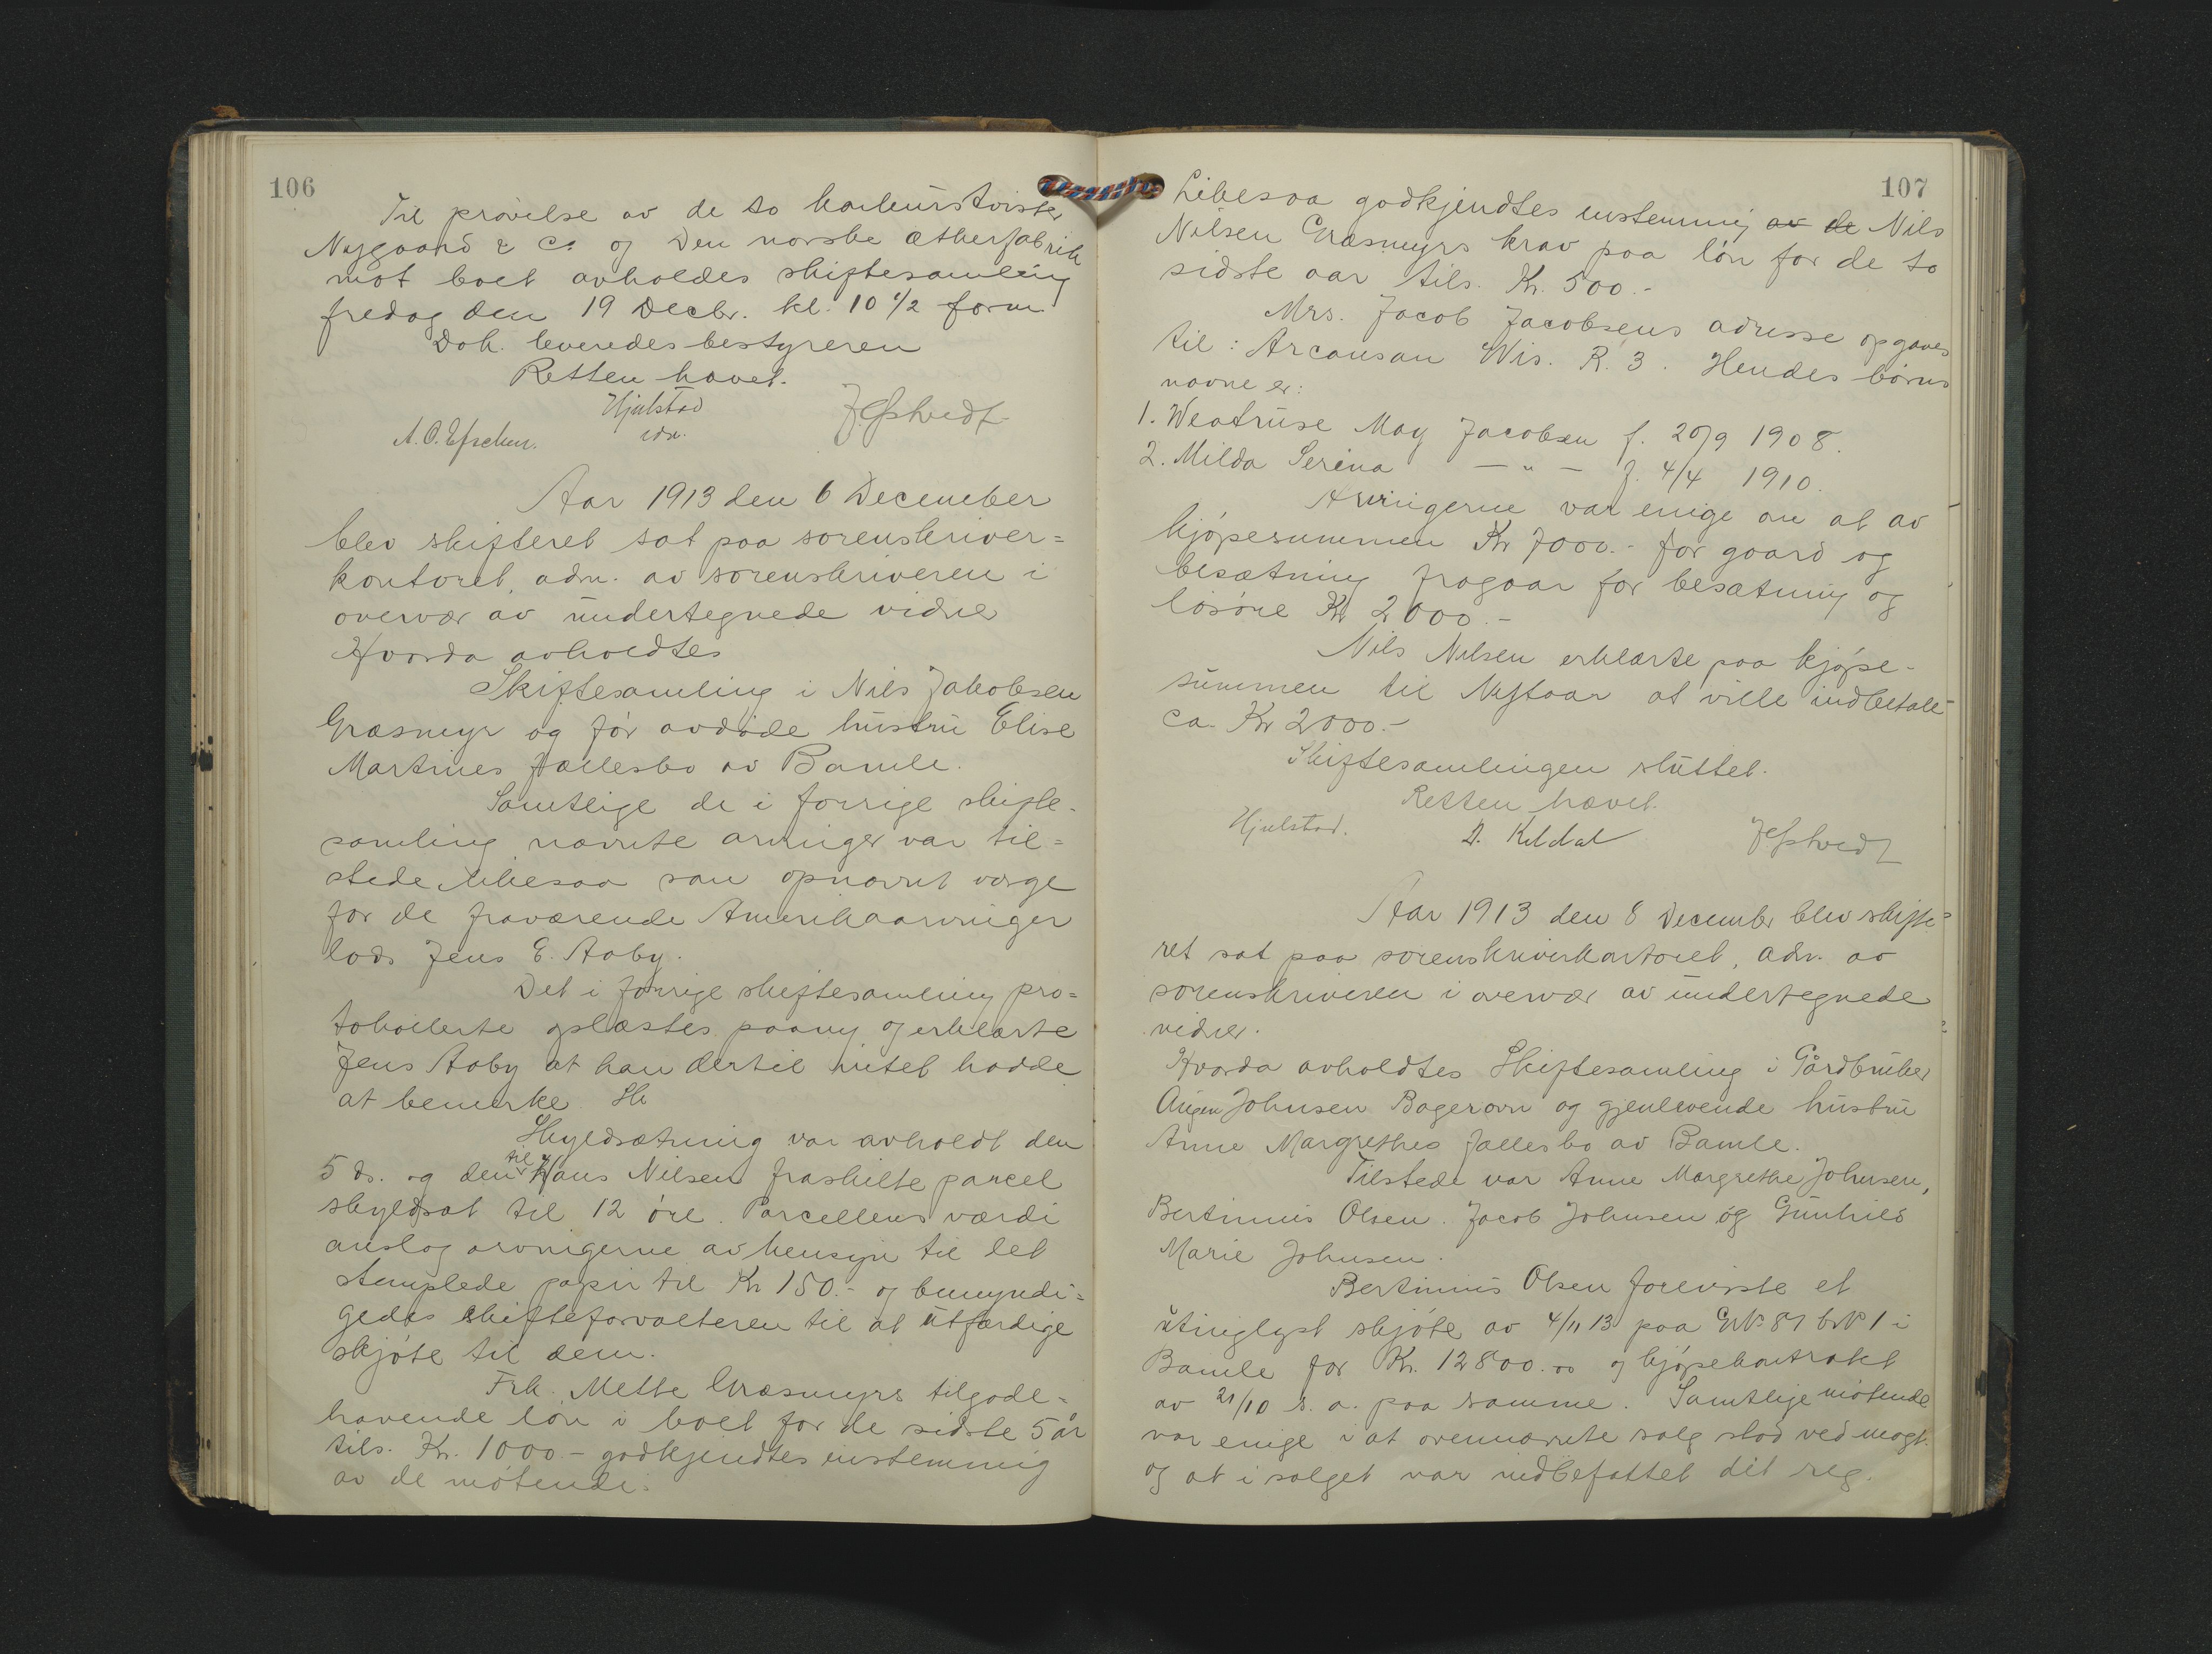 106
Til prøvelse av de to konkurstvister
Nygaard & Co og Den norske ætherfabrik
mot boet avholdes skiftesamling
fredag den 19 Decbr. kl. 10 1/2 form.
Dok. leveredes bestyreren
Retten hævet.
Hjulstad
cdr.
Aar 1913 den 6 December
blev skifteret sat paa sorenskriver=
kontoret, adm. av sorenskriveren i
overvær av undertegnede vidne
Hvorda avholdtes
Skiftesamling i Nils Jakobsen
Græsmyr og før avdøde hustru Elise
Martines fællesbo av Bamle.
Samtlige de i forrige skifte-
samling nævnte arvinger var til=
stede likesaa som opnævnt værge
for de fraværende Amerikaarvinger
lods Jens E. Aaby.
Det i forrige skiftesamling pro=
tokollerte oplæstes paany og erklærte
Jens Aaby at han dertil intet hadde
at bemerke. Sk
Skyldsætning var avholdt den
5 ds. og den til Hans Nilsen fraskilte parcel
skyldsat til 12 øre. Parcellens værdi
anslog arvingerne av hensyn til det
stemplede papir til Kr 150.- og bemyndi=
gedes skifteforvalteren til at utfærdige
skjøte til dem.
Frk. Mette Græsmyrs tilgode=
havende løn i boet for de sidste 5 år
tils. Kr. 1000.- godkjendtes enstemmig
av de møtende.
107
Likesaa godkjendtes enstemmig av de Nils
Nilsen Græsmyrs krav paa løn for de to
sidste aar tils. Kr. 500.-
Mrs. Jacob Jacobsens adresse opgaves
til: Arcansan Wis. R. 3. Hendes børns
navne er:
1. Weatruse May Jacobsen f. 20/9 1908.
2. Milda Serina — " — f. 4/4 1910.
Arvingerne var enige om at av
kjøpesummen Kr 7000.- for gaard og
besætning fragaar for besætning og
løsøre Kr 2000.-
Nils Nilsen erklærte paa kjøpe-
summen til Nyttaar at ville indbetale
ca. Kr 2000.-
Skiftesamlingen sluttet.
Retten hævet.
Hjulstad.
D. Kildal
Aar 1913 den 8 December blev skifte=
ret sat paa sorenskriverkontoret, adm. av
sorenskriveren i overvær av undertegnede
vidner.
Hvorda avholdtes Skiftesamling i Gårdbruker
Augen Johnsen Bagerovn og gjenlevende hustru
Anne Margrethes fællesbo av Bamle.
Tilstede var Anne Margrethe Johnsen,
Bertinius Olsen. Jacob Johnsen og Gunhild
Marie Johnsen.
Bertinius Olsen foreviste et
utinglyst skjøte av 4/11 13 paa GNo 81 bNo 1 i
Bamle for Kr. 12800.00 og kjøpekontrakt
av 21/10 s. a. paa samme. Samtlige møtende
var enige i at ovennævnte salg stod ved magt.
og at i salget var indbefattet det reg.